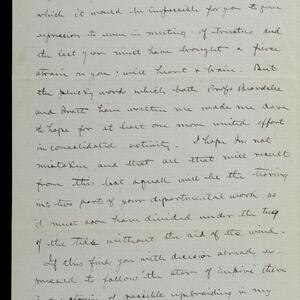 which it would be impossible for you to give
expression to even in meeting of trustees and
the last year must have brought a fierce
strain on you, will heart & brain. But
the word which both Profs Beardslee
and Pratt have written me made me dare
to hope for at least one more united effort
in consolidated activity. I hope Im not
mistaken and that all that will result
from this last squall will be the tearing
into two part of your departmental work, as
it must soon have divided under the tug
of the tide without the aid of the wind.
If this find you with decision already ex-
pressed to follow the star of empire there
is no of possible upbraiding in my